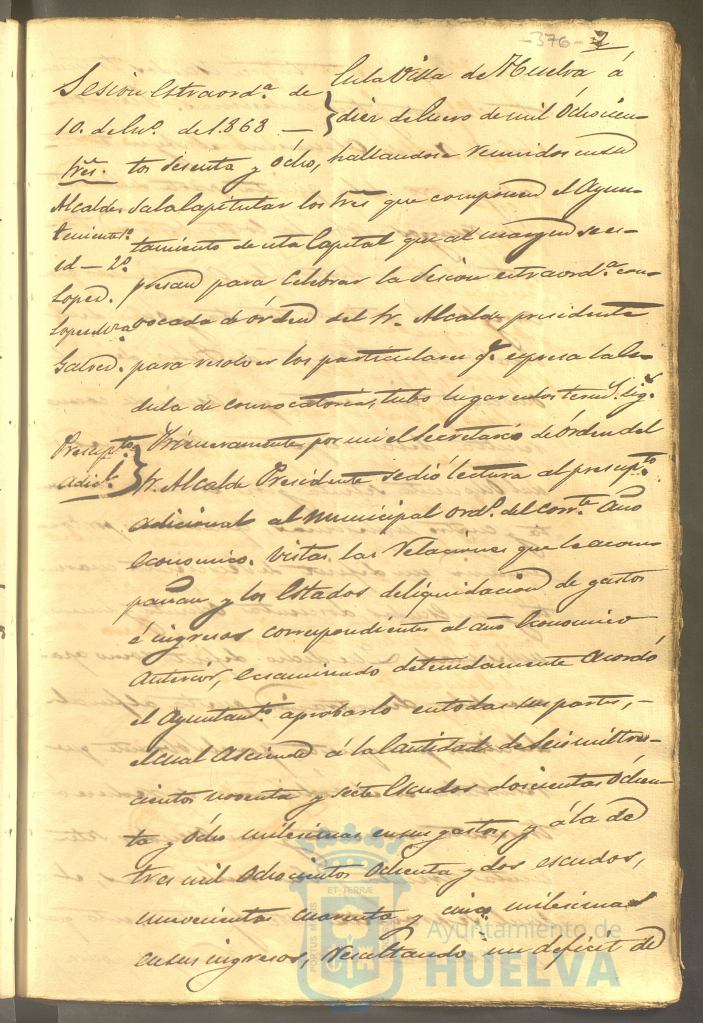 -376- 2
Sesion estraord.ª de
10. de En.º de 1.868 —
En la Villa de Huelva á
diez de Enero de mil Ochocien-
tos sesenta y Ocho, hallandose reunidos en la
Sala Capitular los Sres que componen el Ayun-
tamiento de esta Capital que al margen se es-
presan para celebrar la Sesion estraord.ª con-
vocada de órden del Sr. Alcalde presidente
para resolver los particulares q.e espresa la Ce-
dula de convocatoria, tubo lugar en los term.s sig.s
Sres.
Alcalde
teniente 1.º
id — 2.º
Lopez.
Galved.
Presup.to
adic.l
Primeramente por mi el Secretario de órden del
Sr. Alcalde Presidente se dió lectura al presup.to
adicional al Municipal ord.º del corr.te Año
economico. Vistas las Relaciones que le acom-
pañan y los Estados de liquidacion de gastos
é ingresos correspondientes al año Economico
Anterior, ecsaminado detenidamente Acordó
el Ayuntam.to aprobarlo en todas sus partes, -
el cual Asciende á la Cantidad de Seis mil tres-
cientos noventa y siete Escudos doscientas Ochen-
ta y Ocho milesimas en sus gastos, y á la de
tres mil Ochocientos Ochenta y dos escudos,
novecientas cuarenta y cinco milesimas
en sus ingresos, Resultando un deficit de
PORTUS MARIS
ET TERRÆ
Ayuntamiento de
HUELVA